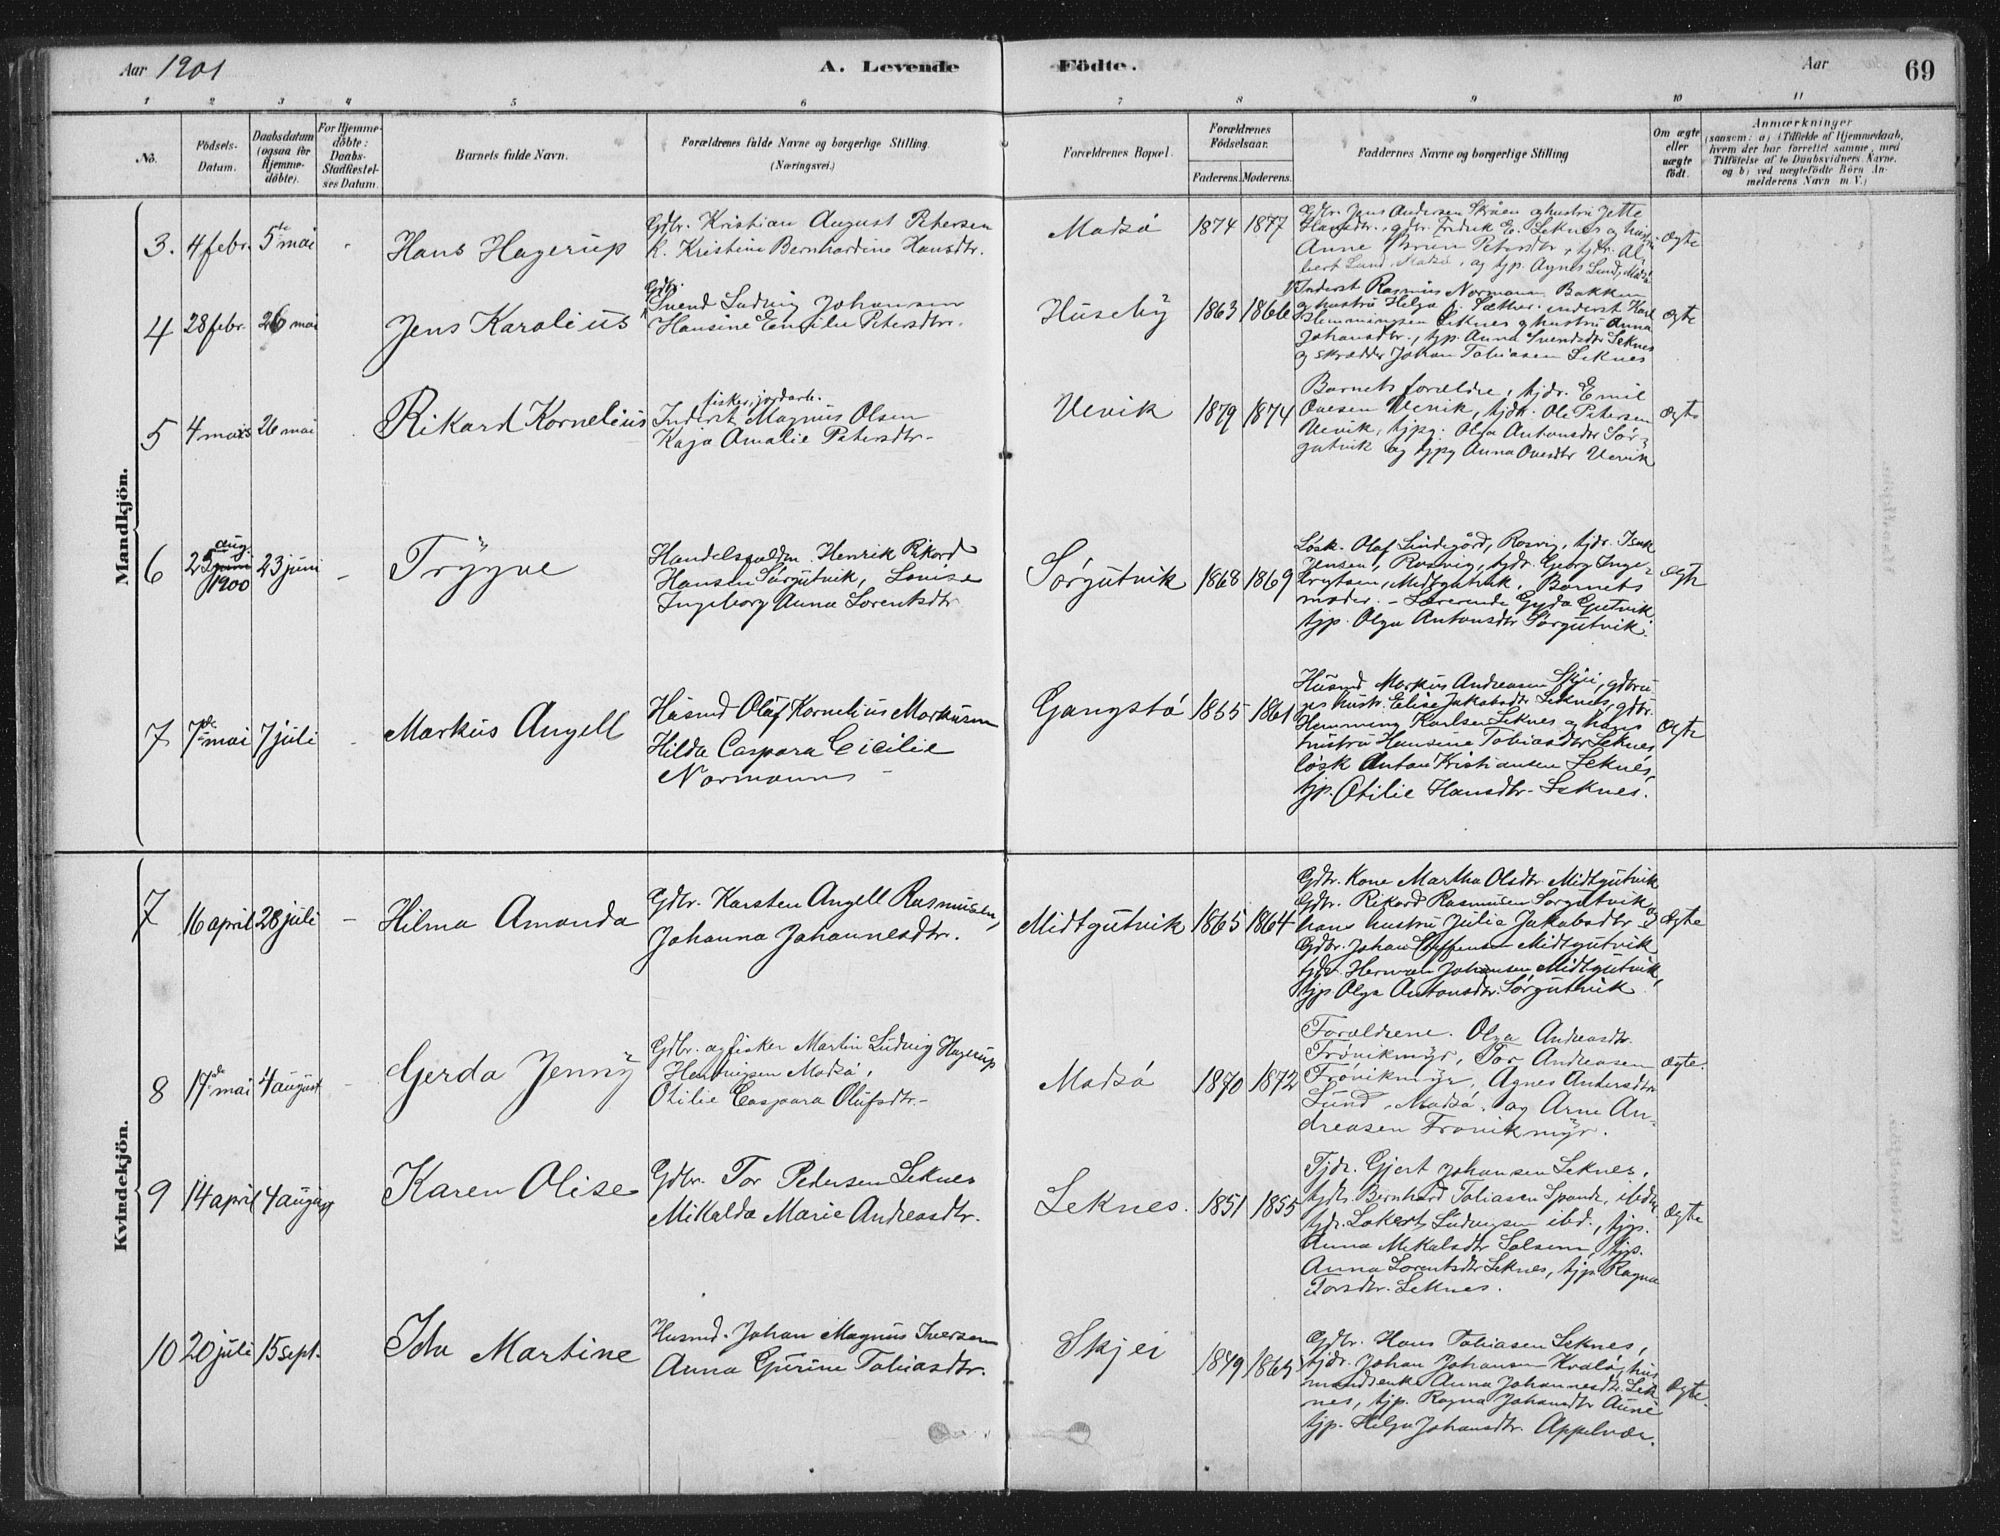 Aar 1901
A. Levende
Födte.
Aar
69
1 2 3 4 5 6 7 8 9 10 11
No.
Födsels-Datum.
Daabsdatum (ogsaa for Hjemmedöbte).
For Hjemmedöbte: Daabs-Stadfæstelses Datum.
Barnets fulde Navn.
Forældrenes fulde Navne og borgerlige Stilling. (Næringsvei.)
Forældrenes Bopæl.
Forældrenes Födselsaar.
Faderens. Moderens.
Faddernes Navne og borgerlige Stilling
Om ægte eller uægte födt.
Anmærkninger
(saasom: a) i Tilfælde af Hjemmedaab, hvem der har forrettet samme, med Tilföielse af to Daabsvidners Navne. og b) ved uægtefödte Börn Anmelderens Navn m. V.)
Mandkjön.
3. 4 febr. 5te mai - Hans Hagerup
Gdbr. Kristian August Petersen
h. Kristine Bernhardine Hansdtr.
Madsø 1874 1877
Gdbr. Jens Andersen Skåen og hustru Jette
Hansdtr., gdbr. Fredrik E. Leknes og hustru
Anne Petersdtr, tjdr. Al-
bert Lund Madsø, og tjp. Agnes Lund, Madsø
ægte
4 28 febr. 26 mai Jens Karolius
Gdbr.
Svend Ludvig Johansen
Hansine Emilie Petersdtr.
Huseby 1863 1866
Inderst Rasmus Normann Bakken
og hustru Helga J. Sæther. inderst Karl
Hemmingsen Leknes og hustru Anna
Johansdtr., tjp. Anna Svendsdtr Leknes
og skrædder Johan Tobiasen Leknes
ægte
5 4 mars 26 mai Rikard Kornelius
fisker, jordarb.
Inderst Magnus Olsen
Kaja Amalie Petersdtr.
Urvik 1879 1874
Barnets forældre, tjdr. Emil
Ovesen Urvik, tjdr. Ole Petersen
Urvik, tjpg. Olga Antonsdtr Sør-
gutvik og tjpg Anna Ovesdtr Urvik
ægte
6 25 aug. 1900 23 juni - Trygve
Handelsfuldm. Henrik Rikard
Hansen Sørgutvik, Lovise
Ingeborg Anna Lorentsdtr
Sørgutvik 1868 1869
Løsk. Olaf Lindegård, Rosvig, tjdr. Isak
Jensen, Rosvig, tjdr. Georg Inge-
brigtsen, Midtgutvik. Barnets
moder. - Lærerinde Gyda Gutvik
tjp. Olga Antonsdtr Sørgutvik.
ægte
7 7de mai 7 juli Markus Angell
Husmd Olaf Kornelius Markusen
Hilda Caspara Cicilie
Normann
Gangstø 1865 1861
Husmd Markus Andreasen Skjei, gdbru-
ges hustr. Elise Jakobsdtr Leknes, gdbr.
Hemming Karlsen Leknes og hans
hustru Hansine Tobiasdtr Leknes
løsk Anton Kristiansen Leknes,
tjp. Otilie Hansdtr. Leknes.
ægte
Kvindekjön.
7 16 april 28 juli - Hilma Amanda
Gdbr. Karsten Angell Rasmussen,
Johanna Johannesdtr.
Midtgutvik 1865 1864
Gdbr. Kone Martha Olsdtr Midtgutvik
Gdbr. Rikard Rasmusen Sørgutvik og
hans hustru Julia Jakobsdtr
Gdbr. Johan Steffensen Midtgutvik
tjdr. Herman Johansen Midtgutvik,
tjp Olga Antonsdtr. Sørgutvik
ægte
8 17de mai 4 august - Gerda Jenny
Gdbr. og fisker Martin Ludvig Hagerup
Henningsen Madsø,
Otilie Caspara Olufsdtr.
Madsø 1870 1872
Forældrene. Olga Andreasdtr.
Frøvikmyr, Tor Andreasen
Frøvikmyr, Agnes Andersdtr
Lund, Madsø. og Arne An-
dreasen Frøvikmyr.
ægte.
9 14 april 4 august Karen Olise
Gdbr. Tor Pedersen Leknes
Mikalda Marie Andreasdtr.
Leknes. 1851 1855
Tjdr. Gjert Johansen Leknes,
tjdr. Bernhard Tobiasen Spande, ibidem
tjdr. Lokert Ludvigsen ibd., tjp.
Anna Mikalsdtr Solsem, tjp.
Anna Lorentsdtr Leknes, tjp Ragna
Torsdtr. Leknes.
ægte
10 20 juli 15 sept. Ida Martine
Husmd. Johan Magnus Iversen
Anna Gurine Tobiasdtr.
Skjei 1849 1865
Gdbr. Hans Tobiasen Leknes,
tjdr. Johan Johansen Kvaløy, hus-
mandsenke Anna Johannesdtr. Lek-
nes, tjp. Ragna Johansdtr Aune
tjp. Helga Johansdtr. Appelvær.
ægte.